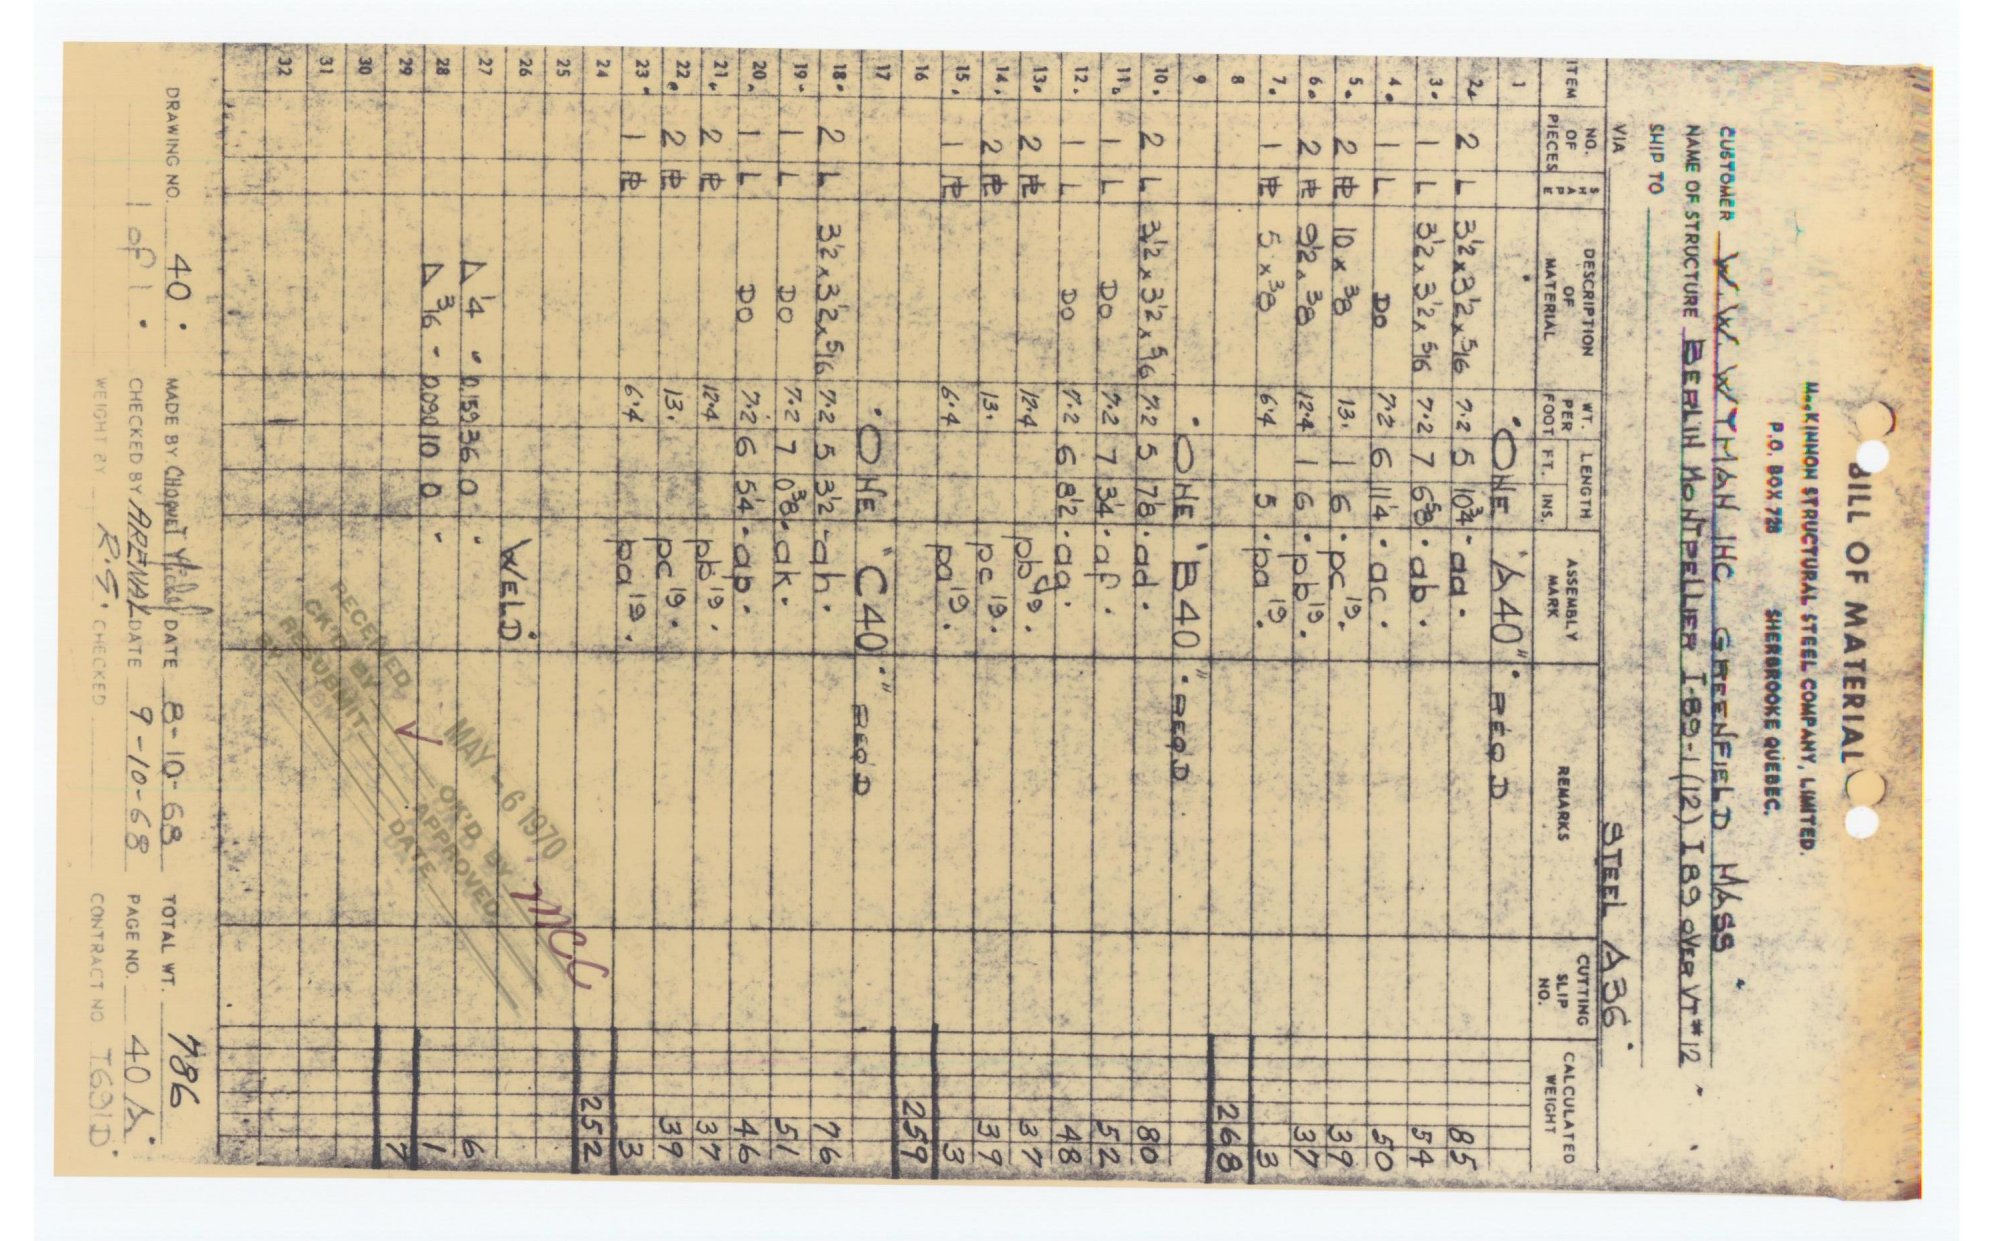 BILL OF MATERIAL
MacKINNON STRUCTURAL STEEL COMPANY, LIMITED.
P.O. BOX 728 SHERBROOKE QUEBEC.
CUSTOMER W.W. WYMAN INC GREENFIELD MASS
NAME OF STRUCTURE BERLIN MONTPELLIER I-89-1(12) I89 OVER VT #12
SHIP TO
VIA STEEL A36
ITEM NO. OF PIECES SHAPE DESCRIPTION OF MATERIAL WT. PER FOOT LENGTH FT. INS. ASSEMBLY MARK REMARKS CUTTING SLIP NO. CALCULATED WEIGHT
1 ONE "A40" REQD
2 2 L 3½ x 3½ x 5/16 7.2 5 10¾ aa 85
3 1 L 3½ x 3½ x 5/16 7.2 7 6⅝ ab 54
4 1 L DO 7.2 6 11¼ ac 50
5 2 PL 10 x ⅜ 13. 1 6 pc19 39
6 2 PL 9½ x ⅜ 12.4 1 6 pb19 37
7 1 PL 5 x ⅜ 6.4 5 pa19 3
8 268
9 ONE "B40" REQD
10 2 L 3½ x 3½ x 5/16 7.2 5 7⅛ ad 80
11 1 L DO 7.2 7 3¼ af 52
12 1 L DO 7.2 6 8½ ag 48
13 2 PL 12.4 pb19 37
14 2 PL 13. pc19 39
15 1 PL 6.4 pa19 3
16 259
17 ONE "C40" REQD
18 2 L 3½ x 3½ x 5/16 7.2 5 3½ ah 76
19 1 L DO 7.2 7 0⅜ ak 51
20 1 L DO 7.2 6 5¼ ap 46
21 2 PL 12.4 pb19 37
22 2 PL 13. pc19 39
23 1 PL 6.4 pa19 3
24 252
25
26 WELD
27 ¼ 0.159 36 0 6
28 3/16 0.090 10 0 1
29 7
30
31
32
RECEIVED MAY - 6 1970
CK'D BY OK'D BY MCC
RESUBMIT APPROVED
BY DATE
DRAWING NO. 40 MADE BY CHOQUET DATE 8-10-68 TOTAL WT. 786
1 of 1 CHECKED BY ARENAL DATE 9-10-68 PAGE NO. 40A
WEIGHT BY R.S. CHECKED CONTRACT NO T691D